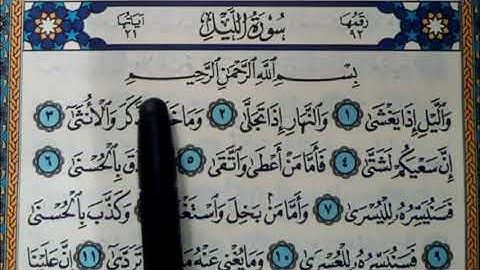 رَقمُهَا ٩٢ سُورَةُ اللَّيْلِ آيَاتُهَا ٢١
بِسْمِ اللَّهِ الرَّحْمَٰنِ الرَّحِيمِ
وَالَّيْلِ إِذَا يَغْشَىٰ ١ وَالنَّهَارِ إِذَا تَجَلَّىٰ ٢ وَمَا وَالْأُنثَىٰ ٣
إِنَّ سَعْيَكُمْ لَشَتَّىٰ ٤ فَأَمَّا مَنْ أَعْطَىٰ وَاتَّقَىٰ ٥ بِالْحُسْنَىٰ ٦
فَسَنُيَسِّرُهُ لِلْيُسْرَىٰ ٧ وَأَمَّا مَنۢ بَخِلَ وَكَذَّبَ بِالْحُسْنَىٰ
٩ فَسَنُيَسِّرُهُ لِلْعُسْرَىٰ ١٠ وَمَا يُغْنِي عَنْهُ تَرَدَّىٰ ١١ إِنَّ عَلَيْنَا